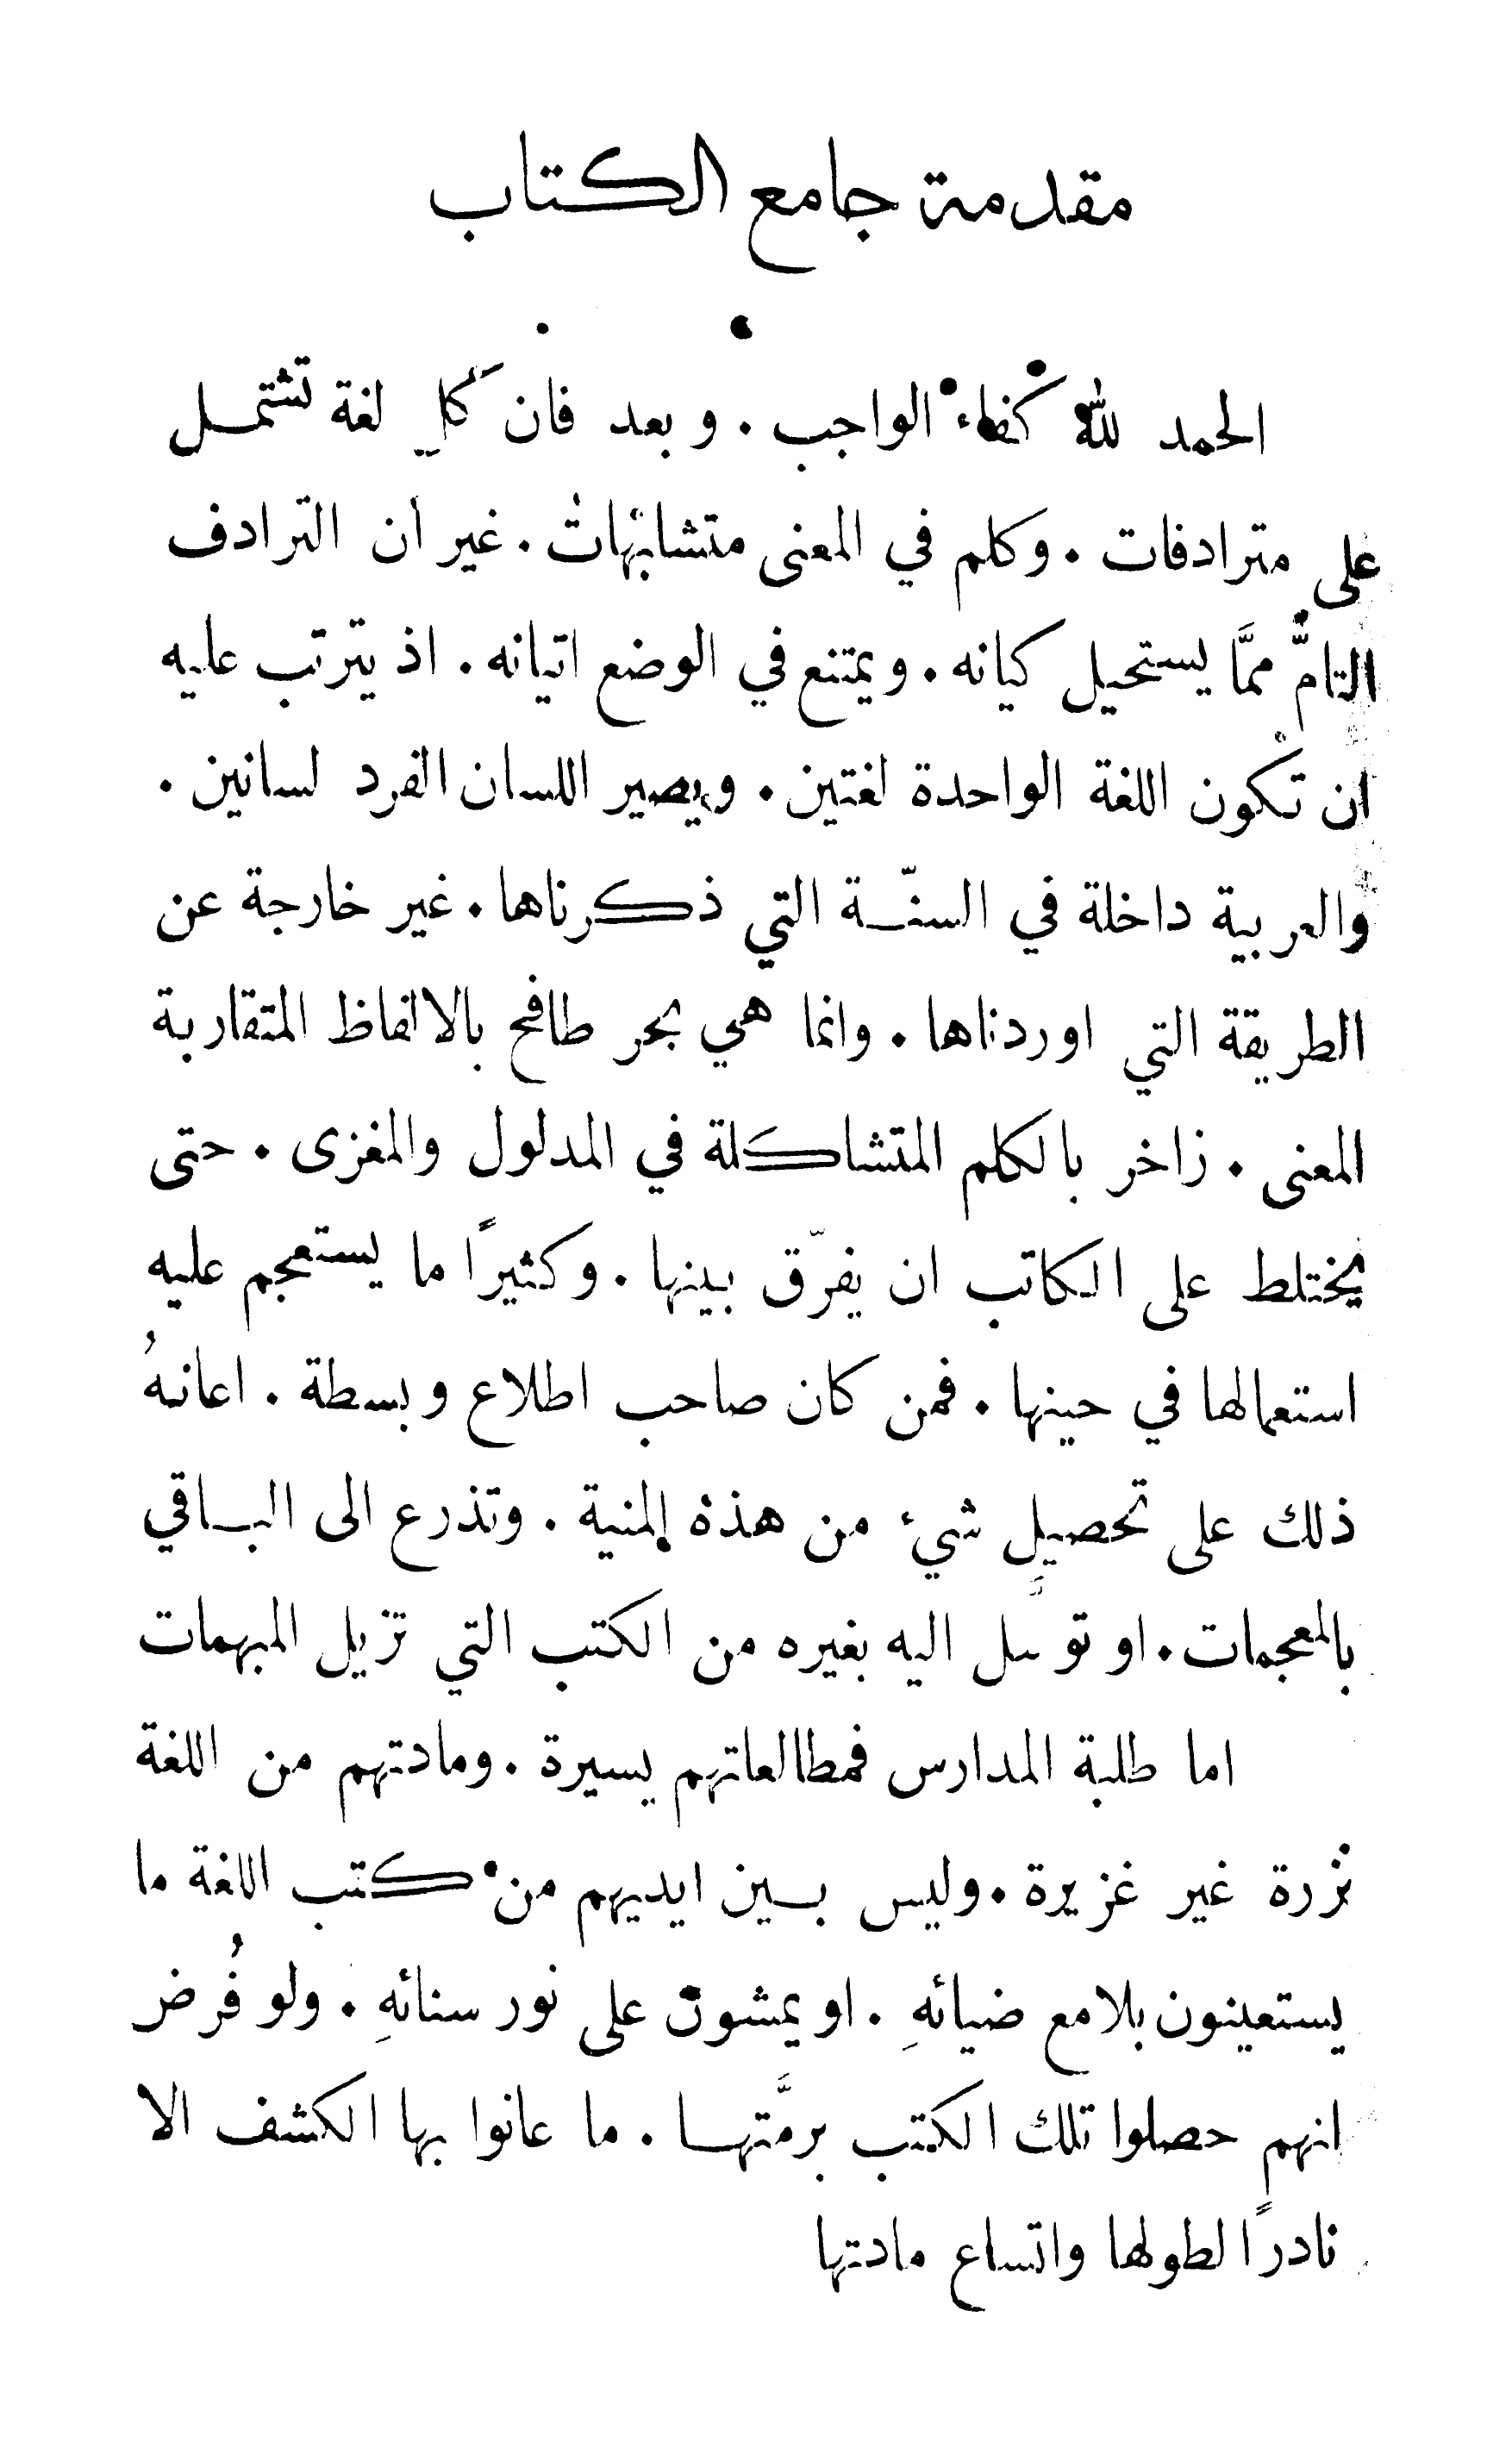 مقدمة جامع الكتاب
الحمد لله كفاء الواجب . وبعد فان كل لغة تشتمل
على مترادفات . وكلم في المعنى متشابهات . غير ان الترادف
التامّ ممَّا يستحيل كيانه . ويمتنع في الوضع اتيانه . اذ يترتب عليه
ان تكون اللغة الواحدة لغتين . ويصير اللسان الفرد لسانين .
والعربية داخلة في السنّة التي ذكرناها . غير خارجة عن
الطريقة التي اوردناها . وانما هي بحر طافح بالالفاظ المتقاربة
المعنى . زاخر بالكلم المتشاكلة في المدلول والمغزى . حتى
يختلط على الكاتب ان يفرّق بينها . وكثيرًا ما يستعجم عليه
استعمالها في حينها . فمن كان صاحب اطلاع وبسطة . اعانهُ
ذلك على تحصيل شيء من هذه المنية . وتذرع الى الباقي
بالمعجمات . او توسَّل اليه بغيره من الكتب التي تزيل المبهمات
اما طلبة المدارس فمطالعاتهم يسيرة . ومادتهم من اللغة
نزرة غير غزيرة . وليس بين ايديهم من كتب اللغة ما
يستعينون بلامع ضيائهِ . او يمشون على نور سنائهِ . ولو فُرض
انهم حصلوا تلك الكتب برمَّتها . ما عانوا بها الكشف الا
نادرًا لطولها واتساع مادتها